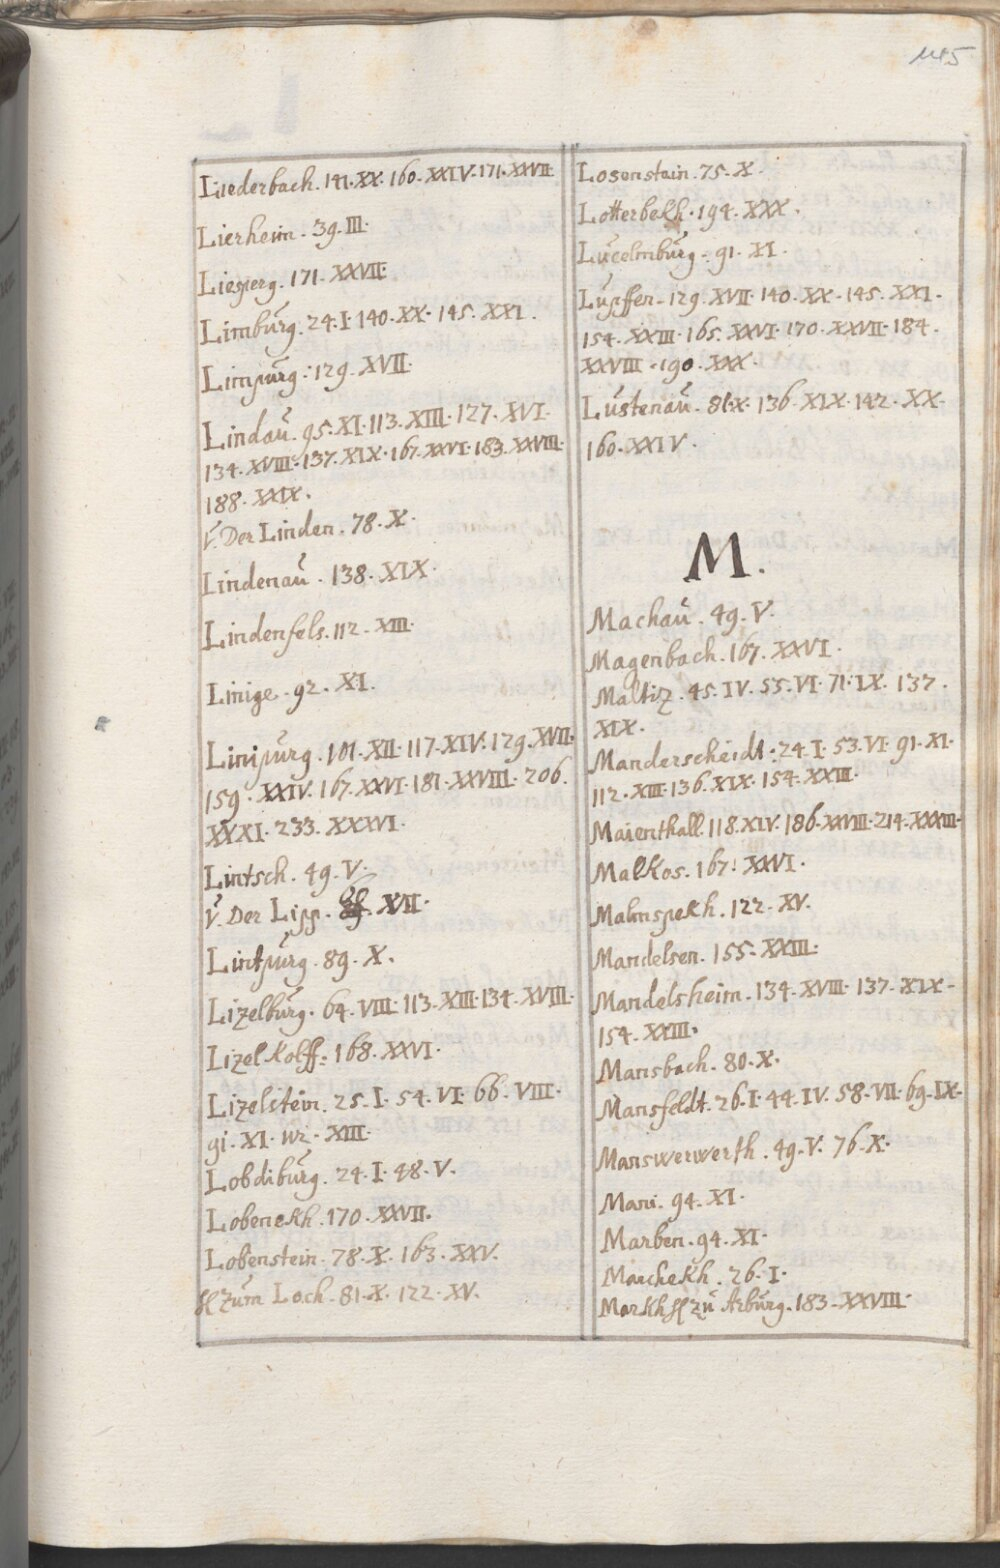 1145
Liederbach. 141. XX. 160. XXIV. 171. XXVII.
Lierheim. 39. III.
171. XXVII.
Limbŭrg. 24. I. 140. XX. 145. XXI.
Limpŭrg. 129. XVII.
Lindaŭ. 95. XI. 113. XIII. 127. XVI.
134. XVIII. 137. XIX. 167. XXVI. 183. XXVIII.
188. XXIX.
V. Der Linden. 78. X.
Lindenaŭ. 138. XIX.
Lindenfels. 112. XIII.
Linige. 92. XI.
Linpŭrg. 101. XII. 117. XIV. 129. XVII.
159. XXIV. 167. XXVI. 181. XXVIII. 206.
XXXI. 233. XXXVI.
Lintsch. 49. V.
V. Der Lipp. XII.
Lintpŭrg. 89. X.
Lizelbŭrg. 64. VIII. 113. XIII. 134. XVIII.
Lizelkolff. 168. XXVI.
Lizelstein. 25. I. 54. VI. 66. VIII.
91. XI. 112. XIII.
Lobdibŭrg. 24. I. 48. V.
Lobenekh. 170. XXVII.
Lobenstein. 78. X. 163. XXV.
zŭm Loch. 81. X. 122. XV.
Losenstain. 75. X.
Lotterbekh. 194. XXX.
Lŭcelmbŭrg. 91. XI.
Lŭpffen. 129. XVII. 140. XX. 145. XXI.
154. XXIII. 165. XXVI. 170. XXVII. 184.
XXVIII. 190. XXX.
Lŭstenaŭ. 81. X. 136. XIX. 142. XX.
160. XXIV.
M.
Machaŭ. 49. V.
Magenbach. 167. XXVI.
Maltiz. 45. IV. 55. VI. 71. IX. 137.
XIX.
Manderscheidt. 24. I. 53. VI. 91. XI.
112. XIII. 136. XIX. 154. XXIII.
Maienthall. 118. XIV. 186. XXVIII. 214. XXXIII.
Malkos. 167. XXVI.
Malmspekh. 122. XV.
Mandelsen. 155. XXIII.
Mandelsheim. 134. XVIII. 137. XIX.
154. XXIII.
Mansbach. 80. X.
Mansfeldt. 26. I. 44. IV. 58. VII. 69. IX.
Manswerwerth. 49. V. 76. X.
Mani. 94. XI.
Marben. 94. XI.
Marchekh. 26. I.
zŭ Arbŭrg. 183. XXVIII.